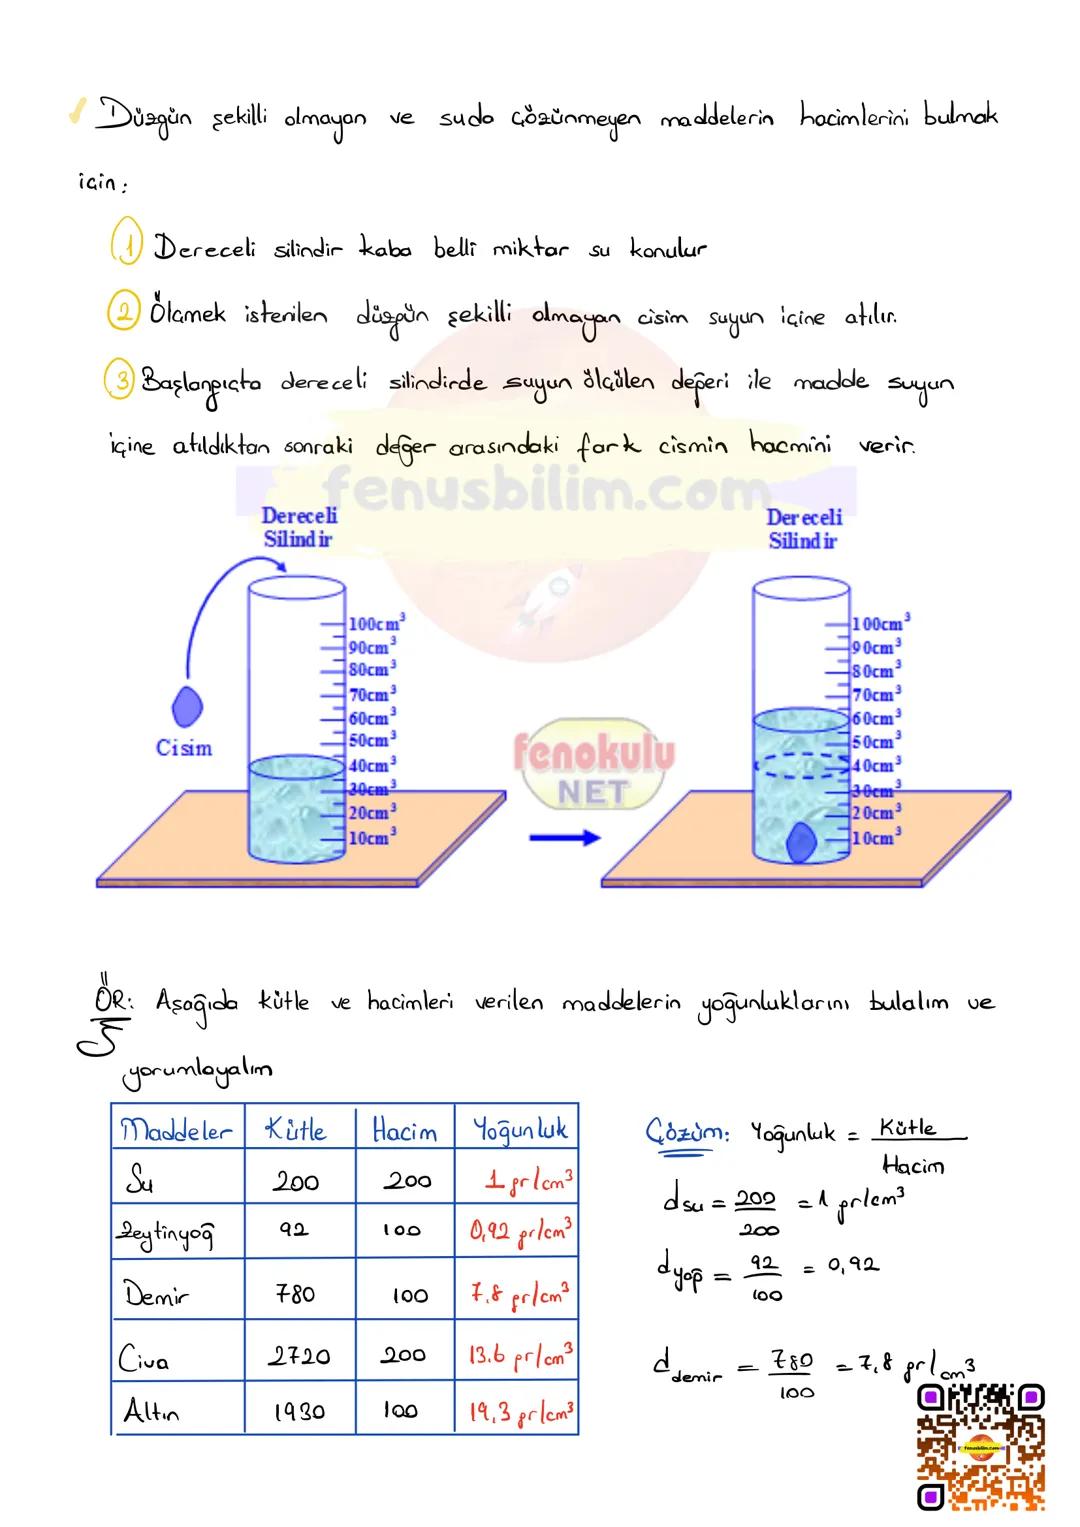 Düzgün şekilli olmayan ve suda çözünmeyen maddelerin hacimlerini bulmak
için:
1 Dereceli silindir kaba belli miktar su konulur
2 Ölçmek istenilen düzgün şekilli olmayan cisim suyun içine atılır.
3 Başlangıçta dereceli silindirde suyun ölçülen değeri ile madde suyun
içine atıldıktan sonraki değer arasındaki fark cismin hacmini verir.
fenusbilim.com
Dereceli
Silindir
100cm³
90cm³
80cm³
70cm³
60cm³
50cm³
40cm³
30cm³
20cm³
10cm³
Cisim
fenokulu
NET
Dereceli
Silindir
100cm³
90cm³
80cm³
70cm³
60cm³
50cm³
40cm³
30cm³
20cm³
10cm³
ÖR: Aşağıda kütle ve hacimleri verilen maddelerin yoğunluklarını bulalım ve
yorumlayalım
Maddeler Kütle Hacim Yoğunluk
Su 200 200 1 gr/cm³
Zeytinyağ 92 100 0,92 gr/cm³
Demir 780 100 7.8 gr/cm³
Civa 2720 200 13.6 gr/cm³
Altın 1930 100 19,3 gr/cm³
Çözüm: Yoğunluk = Kütle
Hacim
dsu = 200 = 1 gr/cm³
200
dyağ = 92 = 0,92
100
ddemir = 780 = 7,8 gr/cm³
100
fenusbilim.com